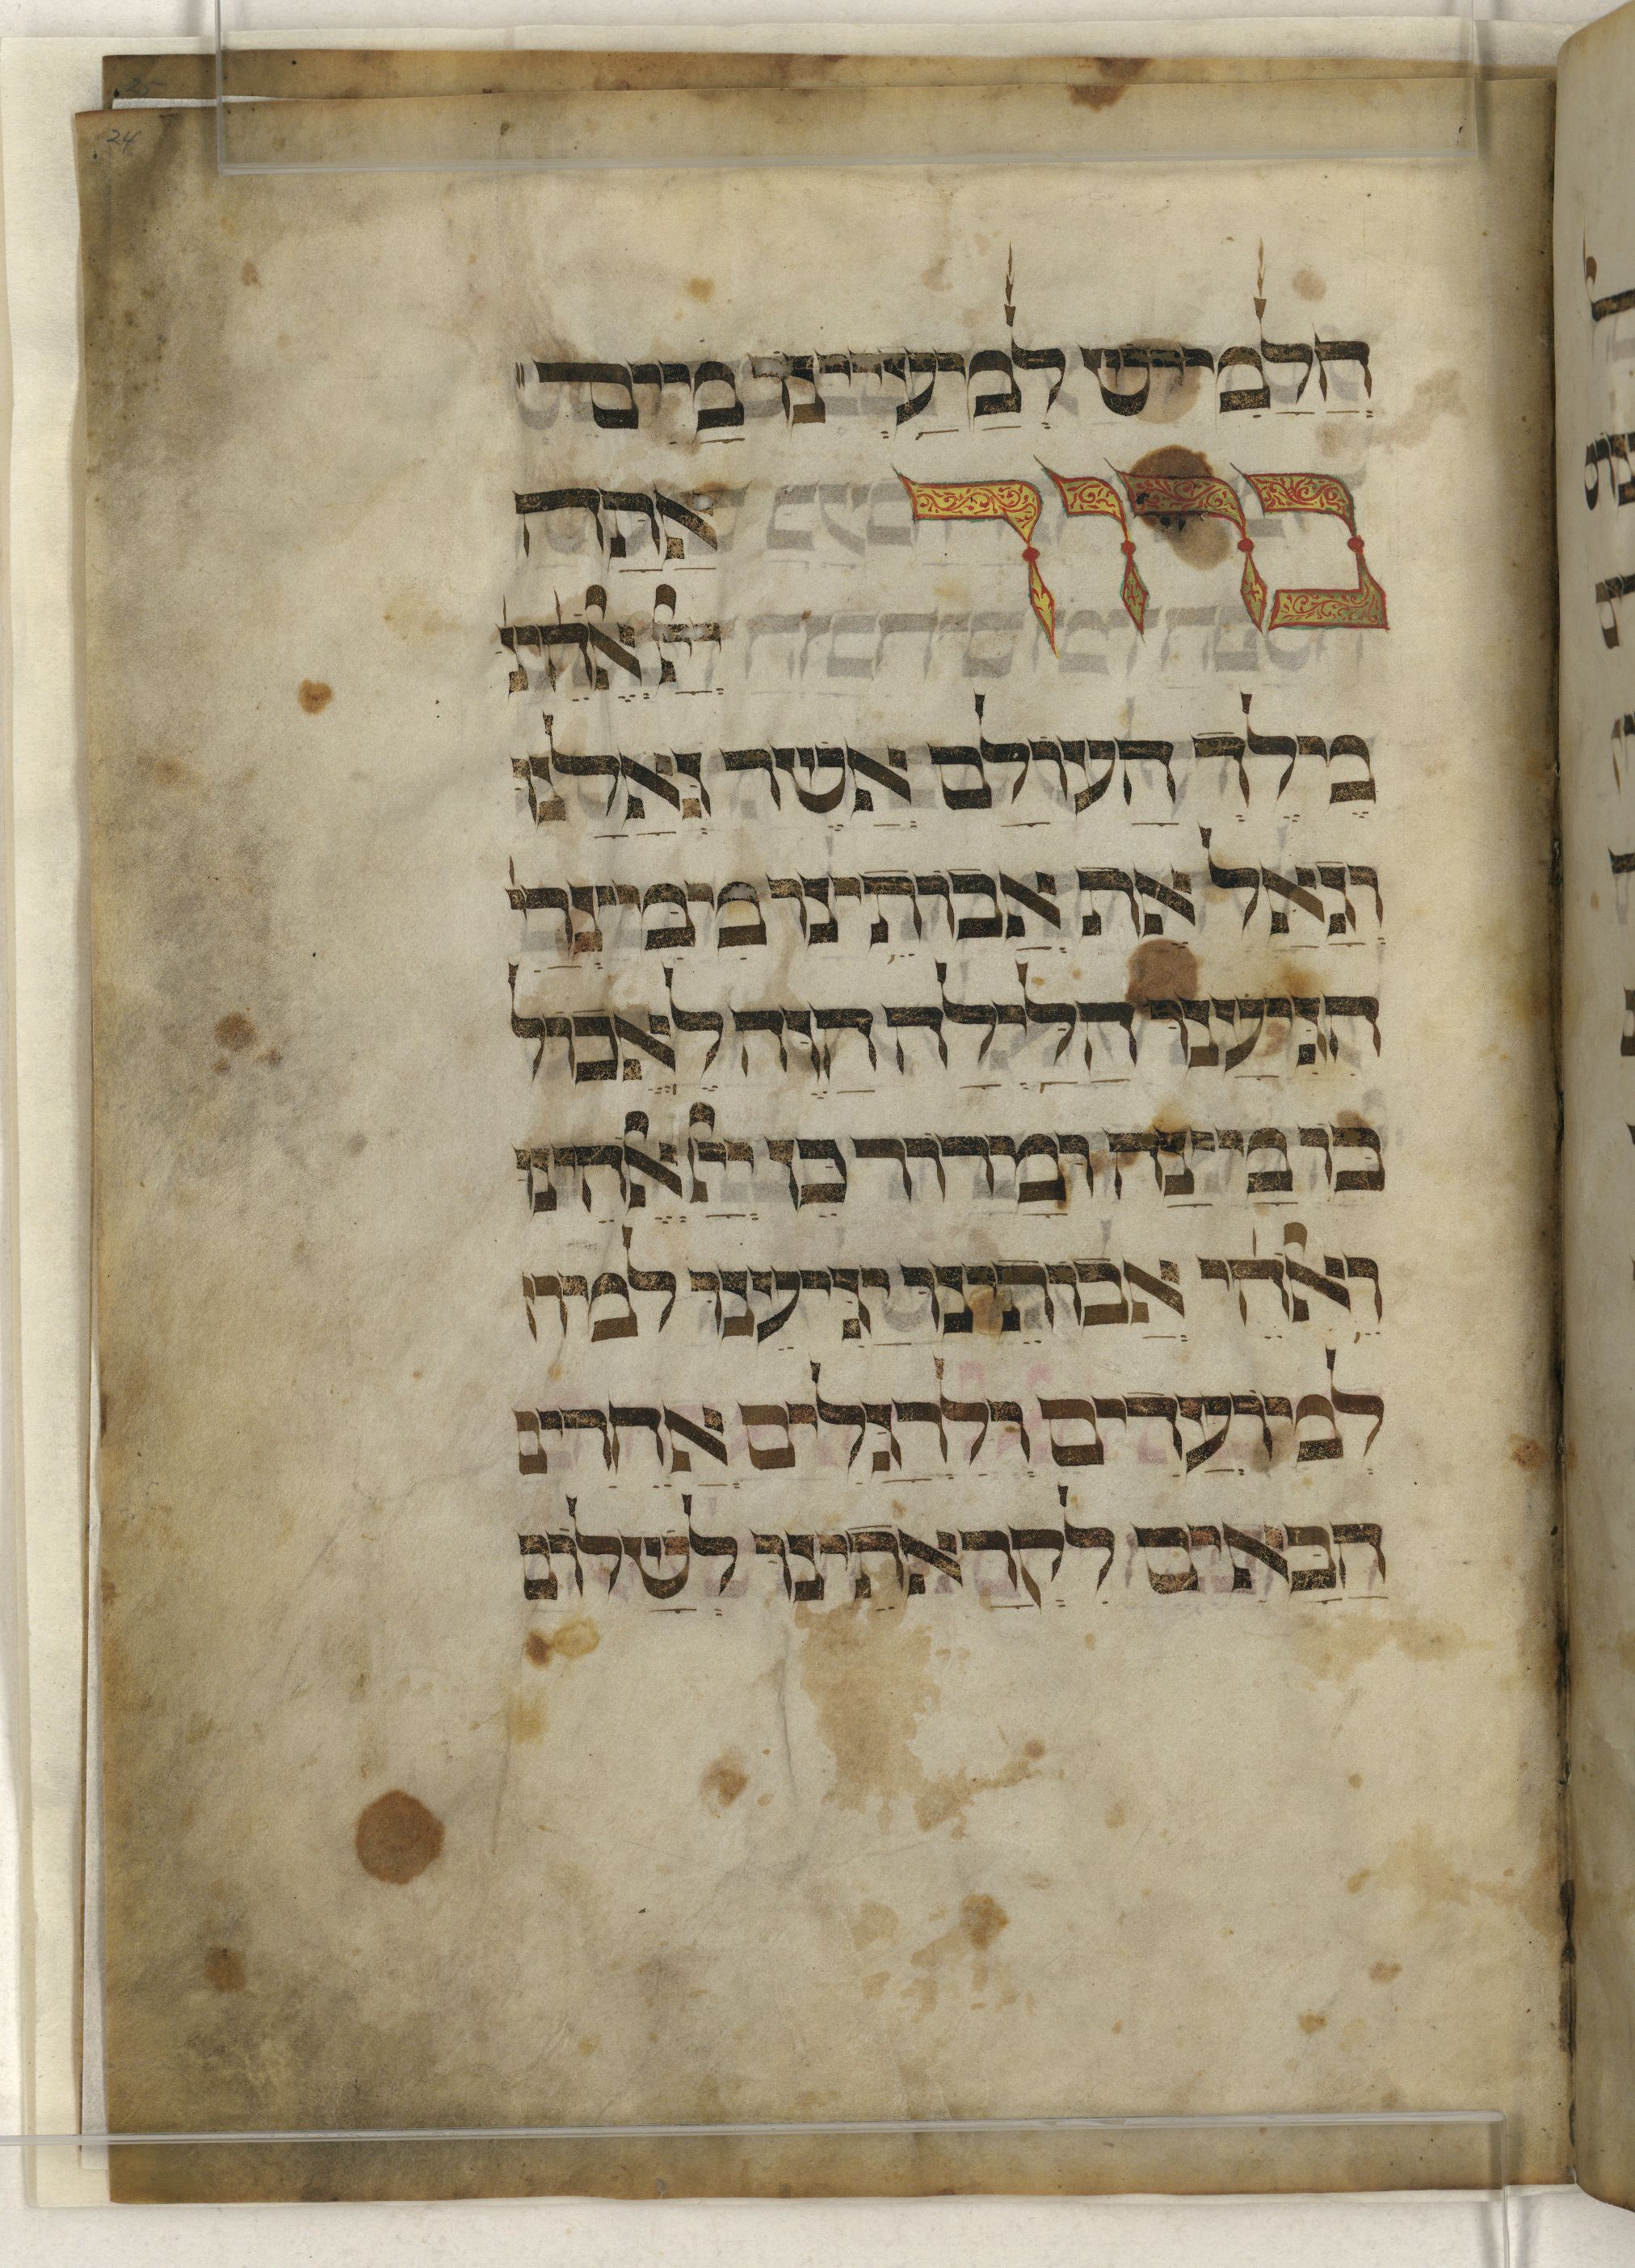 25
24
חלמיש למעיינו מים
ברוך אתה
ייל אלהינו
מילך העולם אשר גאלנו
וגאל את אבותינו מימיצרי
הגיענו הלילה הזה לאכול
בו מיצה ומרור כן ייל אלהינו
ואלהי אבותינו יגיענו למיו
למיועדים ולרגלים אחרים
הבאים לקראתינו לשלום